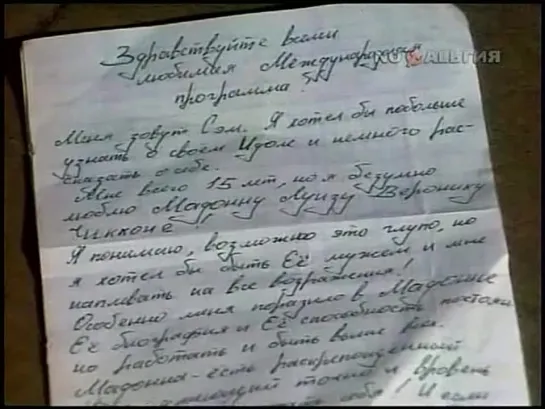 НОСТАЛЬГИЯ
Здравствуйте всеми
любимая Международная
программа!
Меня зовут Сэм. Я хотел бы побольше
узнать о своем Идоле и немного рас-
сказать о себе.
Мне всего 15 лет, но я безумно
люблю Мадонну Луизу Веронику
Чикконе!
Я понимаю, возможно это глупо, но
я хотел бы быть Её мужем и мне
наплевать на все возражения!
Особенно меня поразило в Мадонне
Её биография и Её способность постоян
но работать и быть выше всех.
Мадонна - есть раскрепощенный
точно и вровень
себя! И если